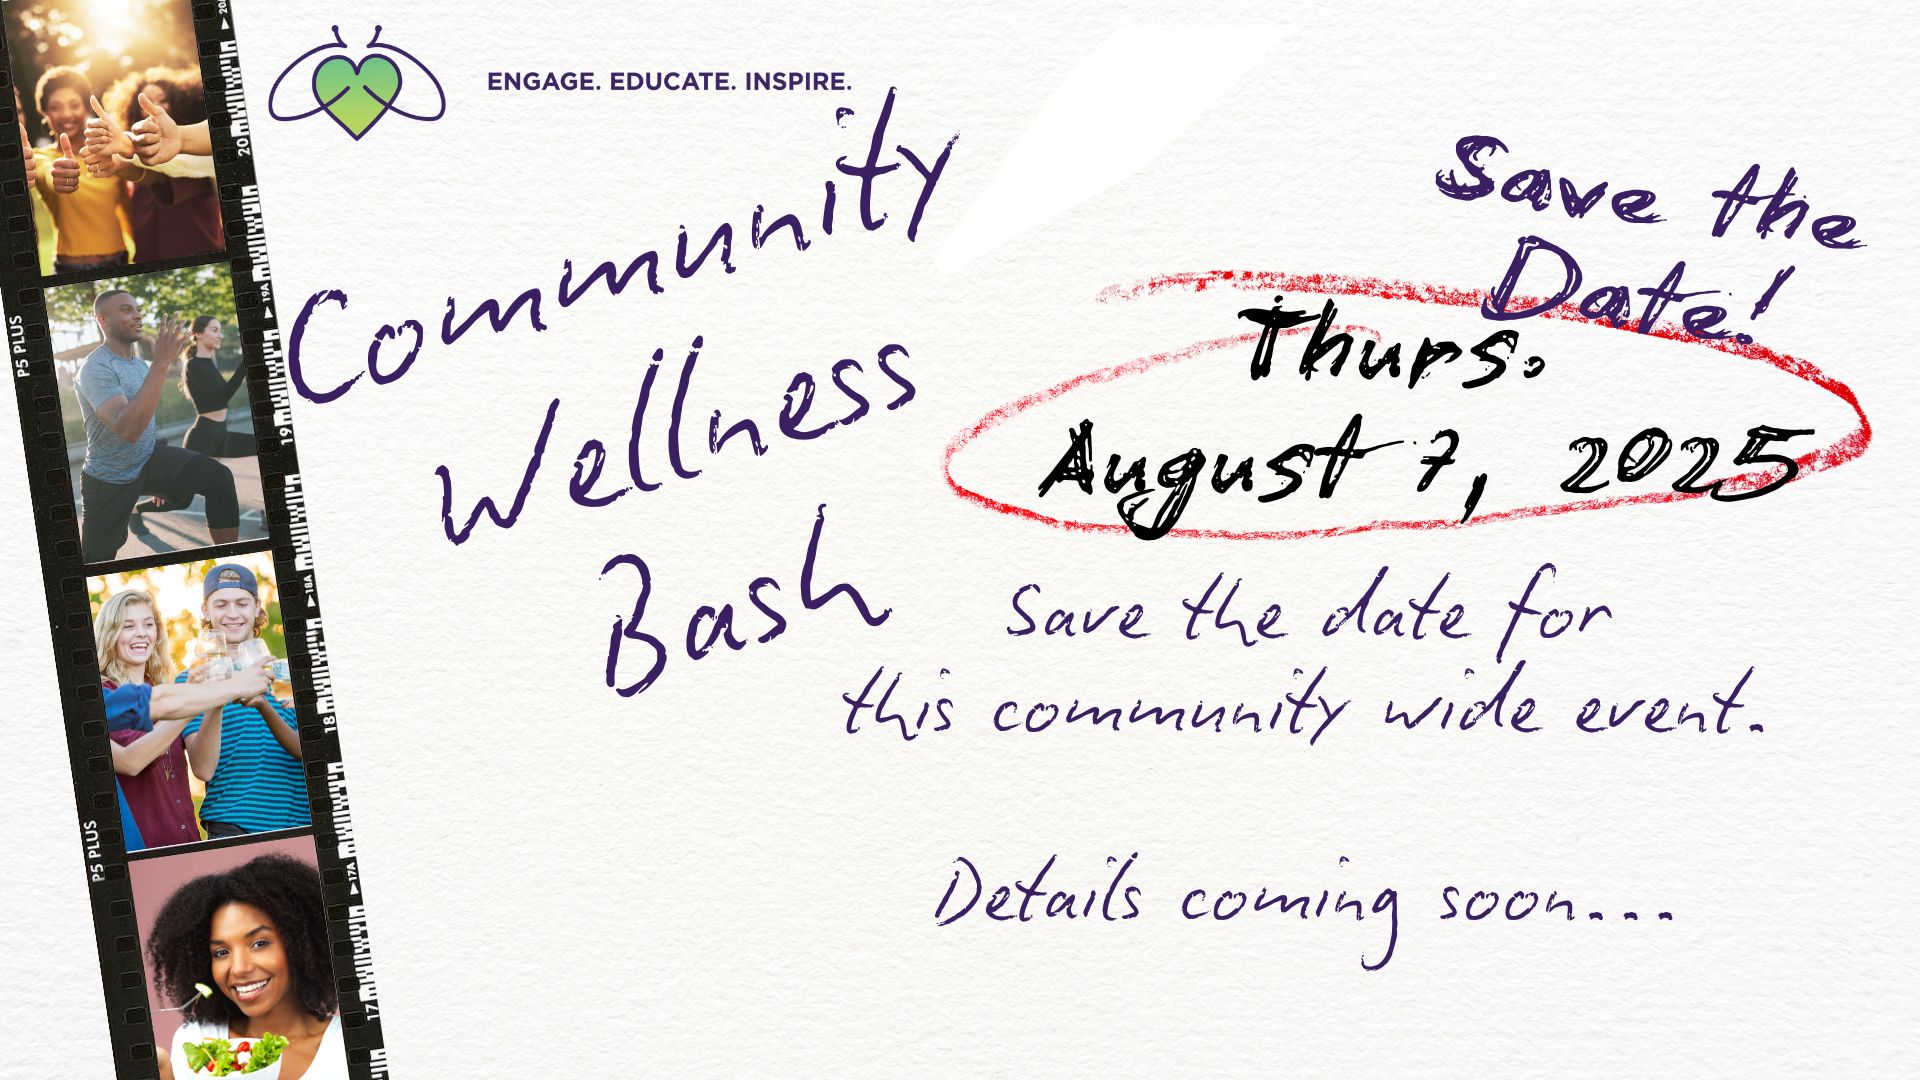 ENGAGE. EDUCATE. INSPIRE.
Community
Wellness
Bash
Save the
Date!
Thurs.
August 7, 2025
Save the date for
this community wide event.
Details coming soon...
P5 PLUS
P5 PLUS
20
19A
19
18A
18
17A
17